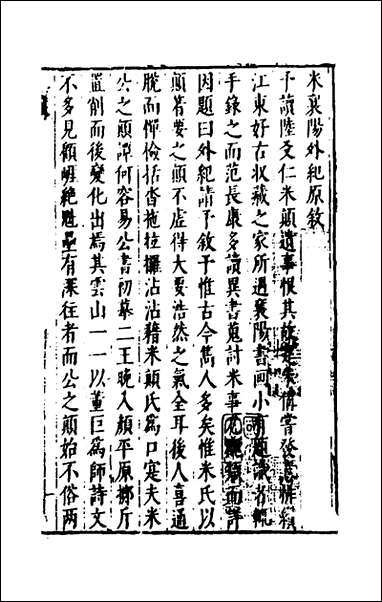 米襄陽外紀原敘
予讀陸友仁米顛遺事恨其故實未備嘗發意蒐緝
江東好古收藏之家所遇襄陽書画小有題識者輒
手錄之而范長康多讀異書蒐討米事尤 而詳
因題曰外紀請予敘予惟古今雋人多矣惟米氏以
顛著要之顛不虛得大要浩然之氣全耳後人喜通
脫而憚檢括沓拖拉攞沾沾藉米顛氏為口寔夫米
公之顛譚何容易公書初摹二王晚入顏平原擲斤
置削而後變化出焉其雲山一一以董巨為師詩文
不多見顧崖絶魁壘有深往者而公之顛始不俗兩